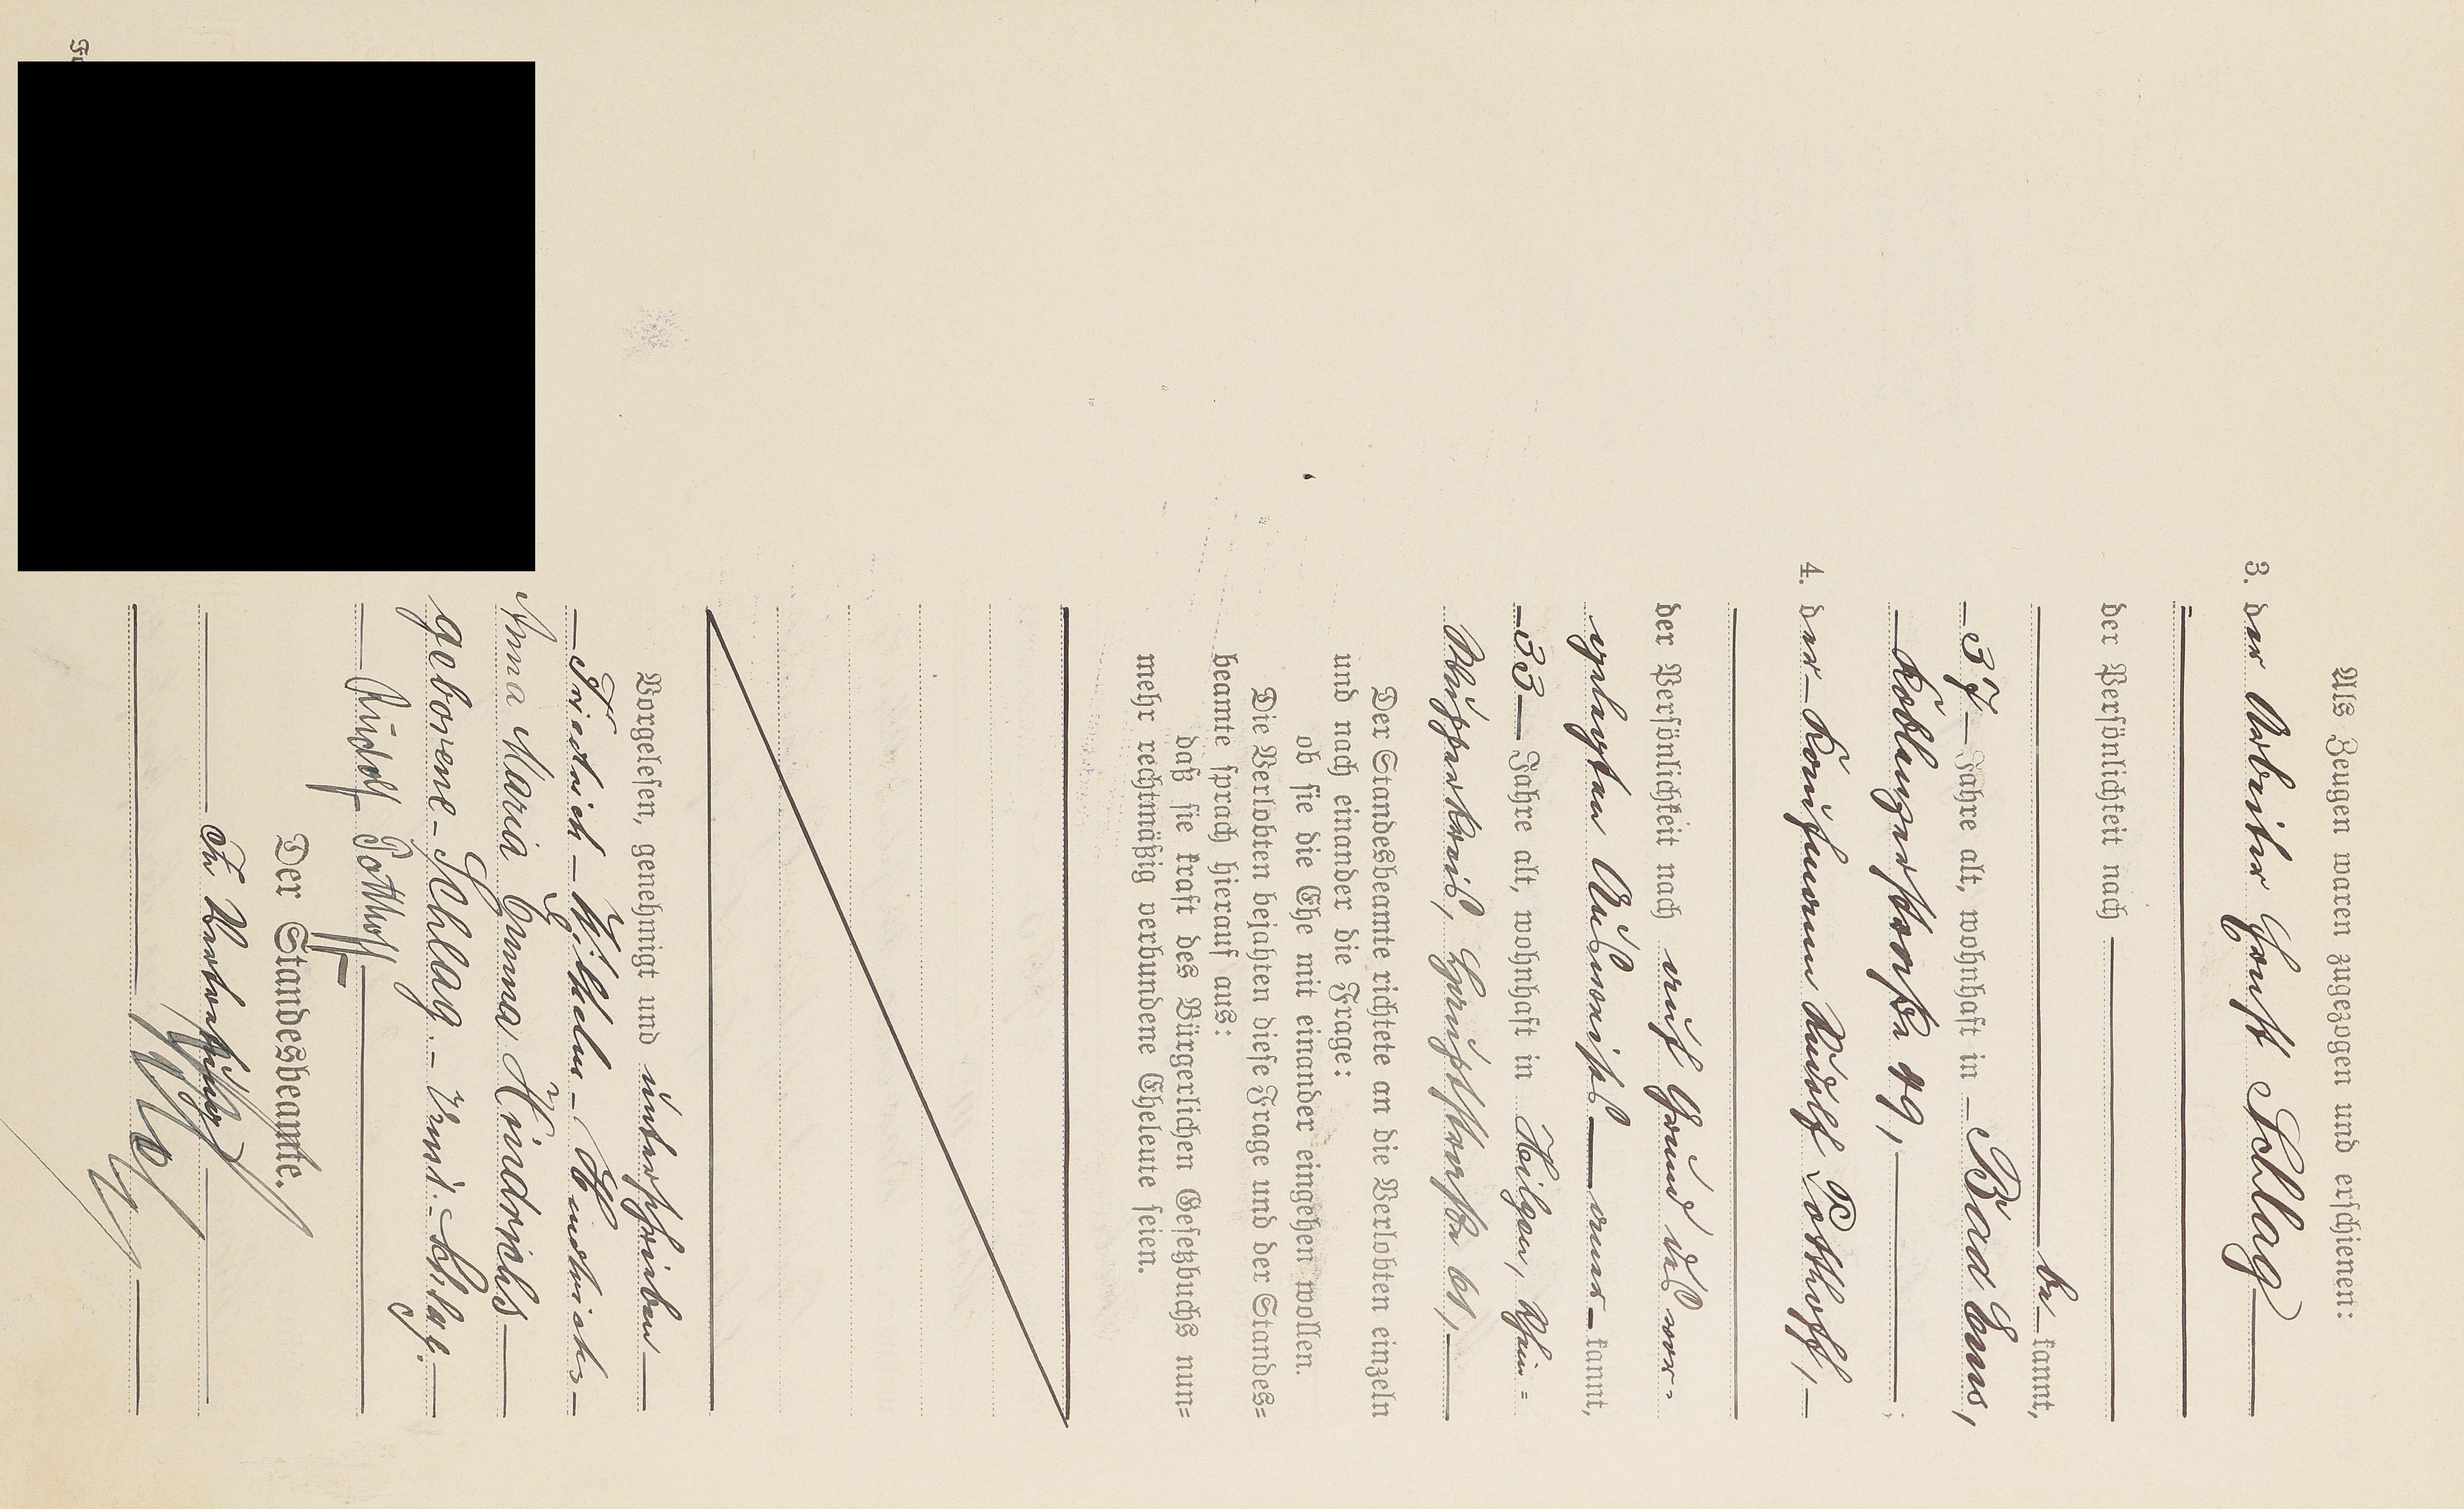 Als Zeugen waren zugezogen und erschienen:
3. der Arbeiter Ernst Schlag
der Persönlichkeit nach
be kannt,
37 Jahre alt, wohnhaft in Bad Ems,
Koblenzerstraße 49,
4. der Kaufmann Rudolf Potthoff,
der Persönlichkeit nach auf Grund des vor-
gelegten Ausweises aner kannt,
33 Jahre alt, wohnhaft in Hilgen, Rhein-
Wupperkreis,
Der Standesbeamte richtete an die Verlobten einzeln
und nach einander die Frage:
ob sie die Ehe mit einander eingehen wollen.
Die Verlobten bejahten diese Frage und der Standes=
beamte sprach hierauf aus:
daß sie kraft des Bürgerlichen Gesetzbuchs nun=
mehr rechtmäßig verbundene Eheleute seien.
Vorgelesen, genehmigt und unterschrieben
Friedrich Wilhelm Hindrichs
Anna Maria Emma Hindrichs
geborene Schlag. Ernst Schlag.
Rudolf Potthoff
Der Standesbeamte.
In Vertretung